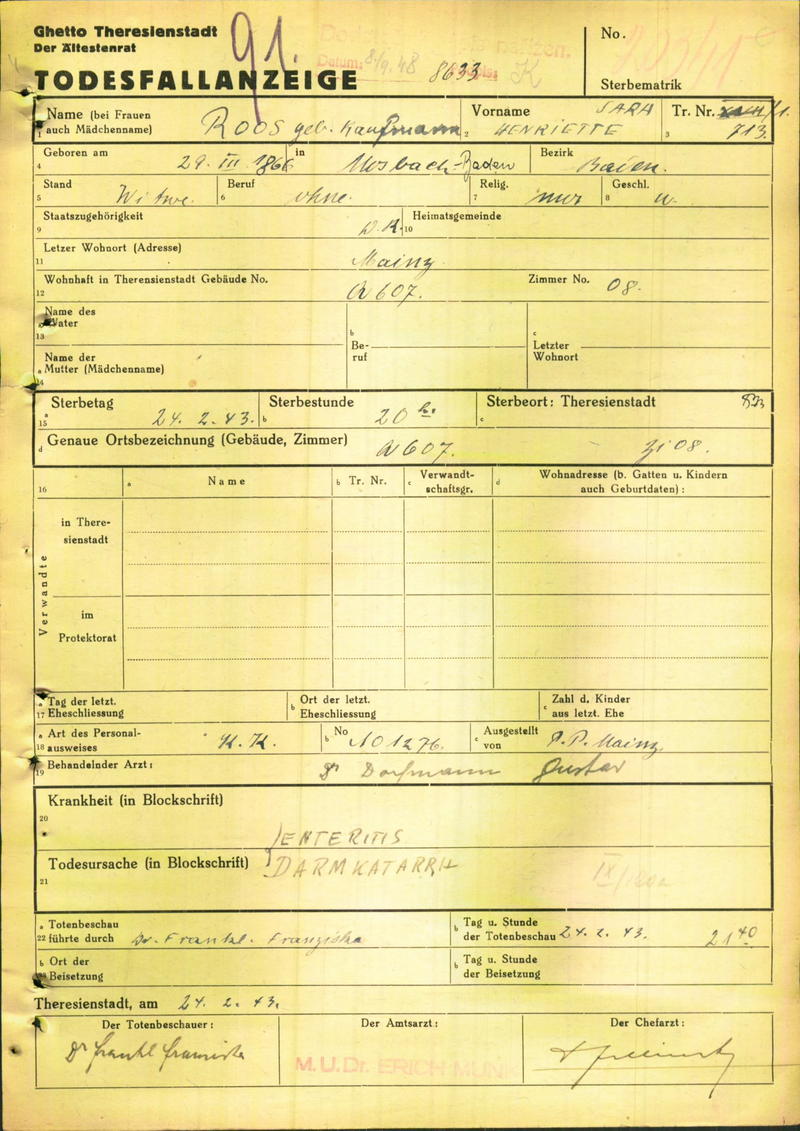 Ghetto Theresienstadt
Der Ältestenrat
91.
Datum: 8/9.48
K
No.
TODESFALLANZEIGE
8633
Sterbematrik
Name (bei Frauen auch Mädchenname) ROOS geb. Kaufmann
1
Vorname SARA HENRIETTE
2
Tr. Nr. /1. 713.
3
Geboren am 29. III. 1866 in Mosbach-Baden
4
Bezirk Baden.
Stand Witwe.
5
Beruf ohne.
6
Relig.
7
Geschl. w.
8
Staatszugehörigkeit D.R.
9
Heimatsgemeinde
10
Letzer Wohnort (Adresse) Mainz
11
Wohnhaft in Therensienstadt Gebäude No. Q 607. Zimmer No. 08.
12
Name des Vater
a
13
b
Be-
ruf
c
Letzter
Wohnort
Name der
a Mutter (Mädchenname)
14
Sterbetag 24. 2. 43.
a
15
Sterbestunde 20 h.
b
Sterbeort: Theresienstadt
c
d Genaue Ortsbezeichnung (Gebäude, Zimmer) Q 607. Zi 08.
16
a Name
b Tr. Nr.
c Verwandt-
schaftsgr.
d Wohnadresse (b. Gatten u. Kindern
auch Geburtdaten):
Verwandte
in There-
sienstadt
im
Protektorat
a Tag der letzt.
17 Eheschliessung
b Ort der letzt.
Eheschliessung
c Zahl d. Kinder
aus letzt. Ehe
a Art des Personal-
18 ausweises K.K.
b No A01276.
c Ausgestellt
von P.P. Mainz.
19 Behandelnder Arzt: Dr Dorfmann Gustav
Krankheit (in Blockschrift)
20
ENTERITIS
Todesursache (in Blockschrift) DARMKATARRH
21
a Totenbeschau
22 führte durch Dr. Frankl. Franziska
b Tag u. Stunde
der Totenbeschau 24. 2. 43. 21 40
b Ort der
Beisetzung
b Tag u. Stunde
der Beisetzung
Theresienstadt, am 24. 2. 43.
Der Totenbeschauer:
Der Amtsarzt:
Der Chefarzt:
Dr Frankl Franziska
M.U.Dr. ERICH MUNK